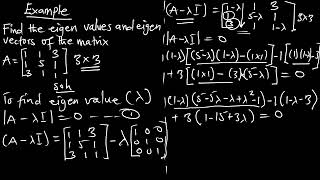 Example
Find the eigen values and eigen
vectors of the matrix
A = [1 1 3
1 5 1
3 1 1] 3×3
soln
To find eigen value (λ)
|A - λI| = 0 ----- ①
(A - λI) = [1 1 3
1 5 1
3 1 1] - λ[1 0 0
0 1 0
0 0 1]
(A - λI) = [1-λ 1 3
1 5-λ 1
3 1 1-λ] 3×3
|A - λI| = 0
(1-λ)[(5-λ)(1-λ) - (1×1)] - 1[1(1-λ)
+ 3[(1×1) - (3)(5-λ)] = 0
(1-λ)(5-5λ-λ+λ²-1) - 1(1-λ-3)
+ 3(1-15+3λ) = 0